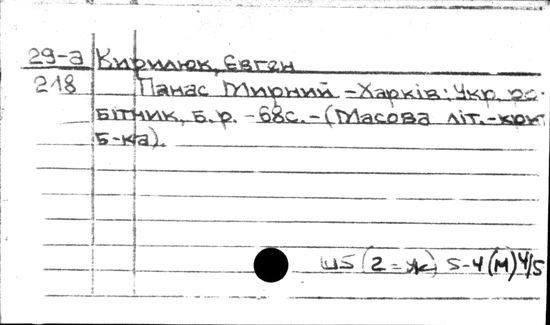 29-а Кирилюк, Євген
218 Панас Мирний – Харків: Укр. ро-
бітник, б. р. – 68с. – (Масова літ.-кри
б-ка).
5-4 (м) 4/5